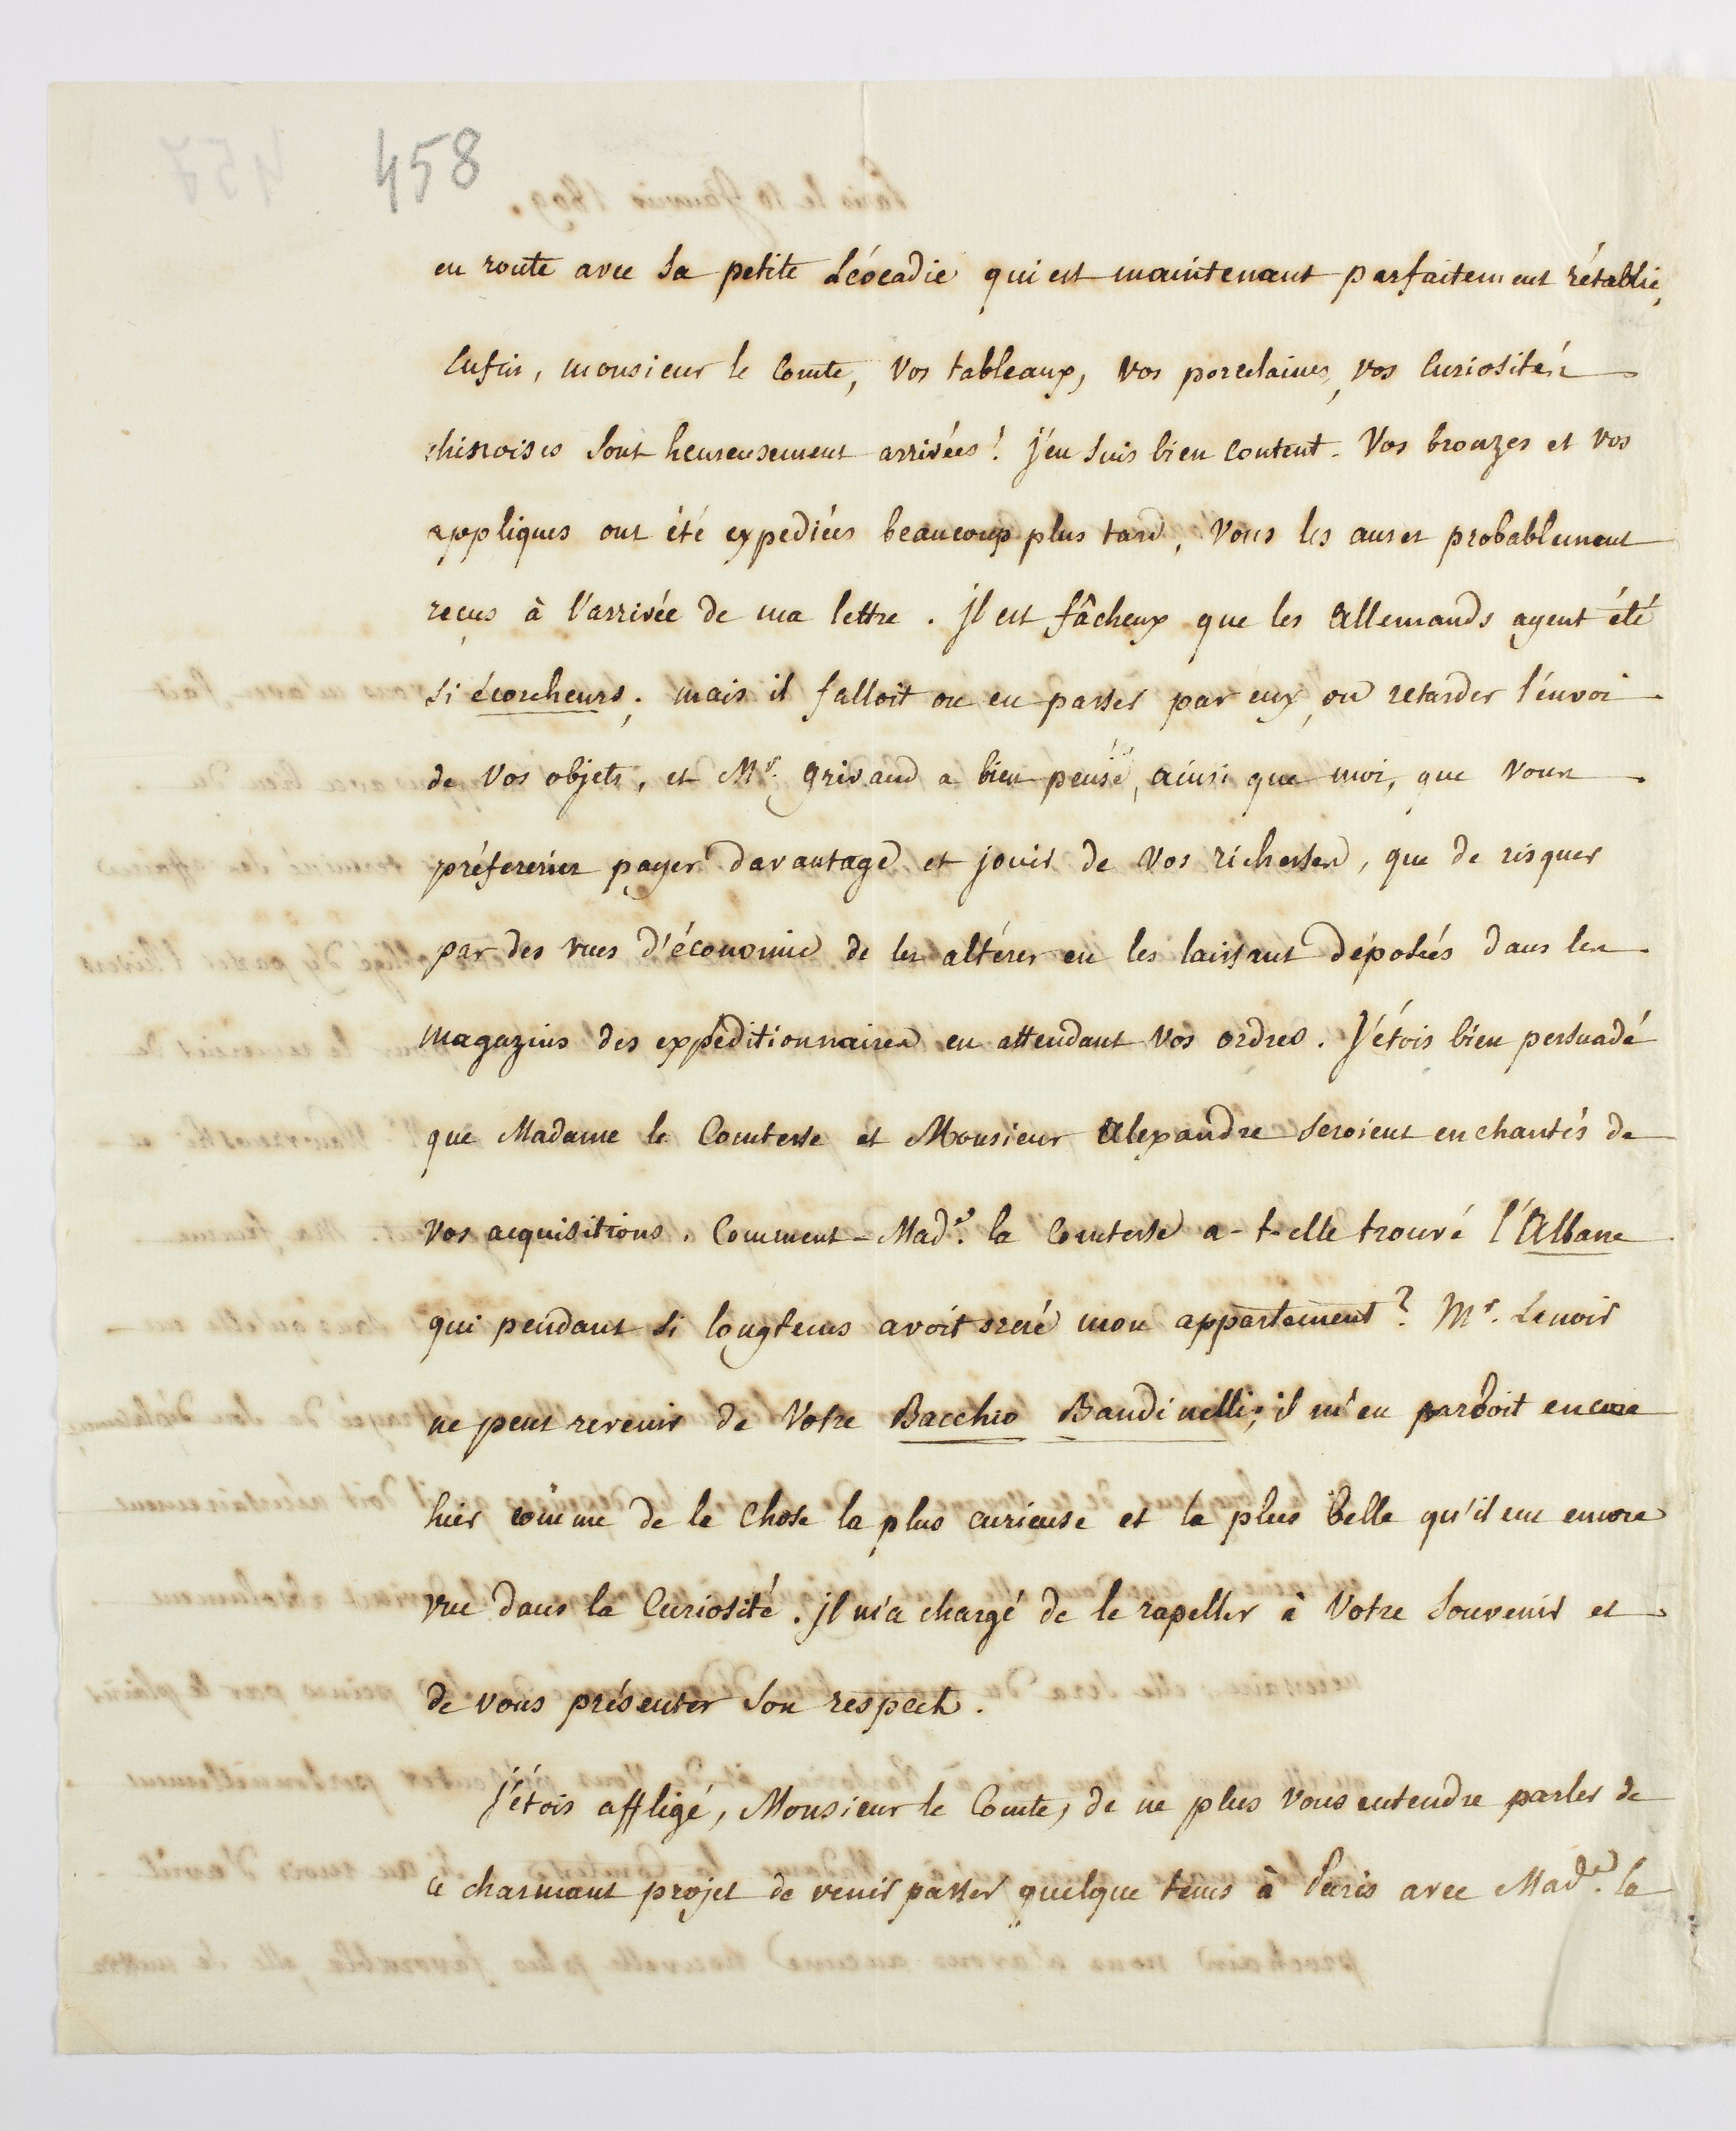 458
en route avec sa petite Léocadie qui est maintenant parfaitement rétablie,
Enfin, monsieur le Comte, vos tableaux, vos porcelaines, vos Curiosités
chinoises sont heureusement arrivées! j'en suis bien content. Vos bronzes et vos
appliques ont été expediées beaucoup plus tard, vous les aurez probablement
reçus à l'arrivée de ma lettre. Il est fâcheux que les Allemands ayent été
si écorcheurs; mais il falloit ou en passer par eux, ou retarder l'envoi
de vos objets, et Mr. Grivaud a bien pensé, ainsi que moi, que vous
préfereriez payer davantage et jouir de vos richesses, que de risquer
par des vues d'économie de les altérer en les laissant déposées dans les
magazins des expéditionnaires en attendant vos ordres. J'étois bien persuadé
que Madame la Comtesse et Monsieur Alexandre seroient enchantés de
vos acquisitions. Comment Made. la Comtesse a-t-elle trouvé l'Albane
qui pendant si longtems avoit orné mon appartement? Mr. Lenoir
ne peut revenir de votre Bacchio Bandinelli; il m'en parloit encore
hier comme de la chose la plus curieuse et la plus belle qu'il eut encore
vue dans la Curiosité. il m'a chargé de le rapeller à votre souvenir et
de vous présenter son respect.
J'étois affligé, Monsieur le Comte, de ne plus vous entendre parler de
ce charmant projet de venir passer quelque tems à Paris avec Made. la